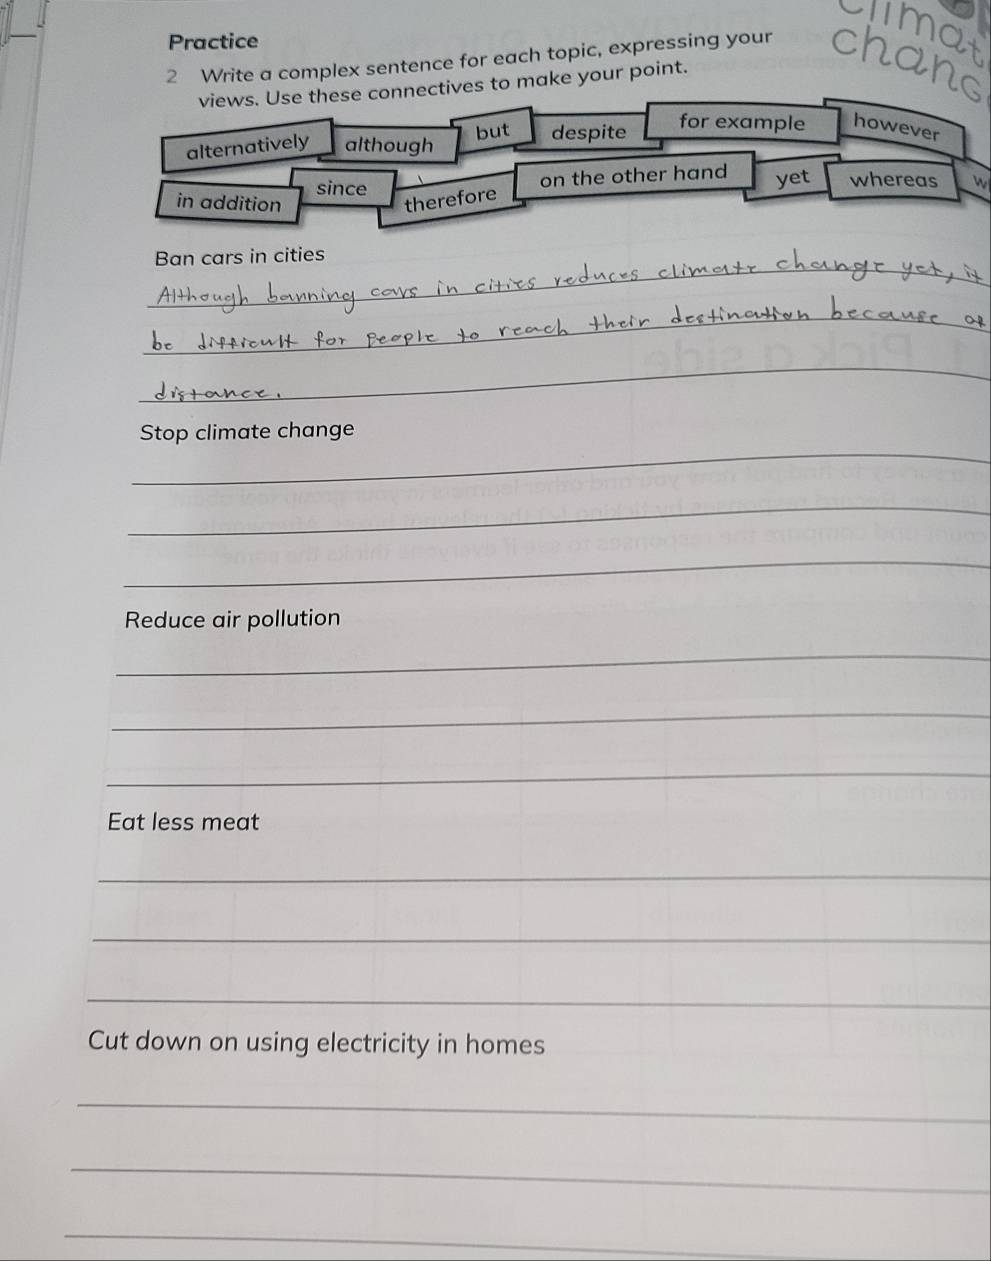 Practice
climat
chang
2 Write a complex sentence for each topic, expressing your
views. Use these connectives to make your point.
alternatively although but despite for example however
in addition since therefore on the other hand yet whereas w
Ban cars in cities
Although banning cars in cities reduces climate change yet, it
be difficult for people to reach their destination because of
distance.
Stop climate change
Reduce air pollution
Eat less meat
Cut down on using electricity in homes